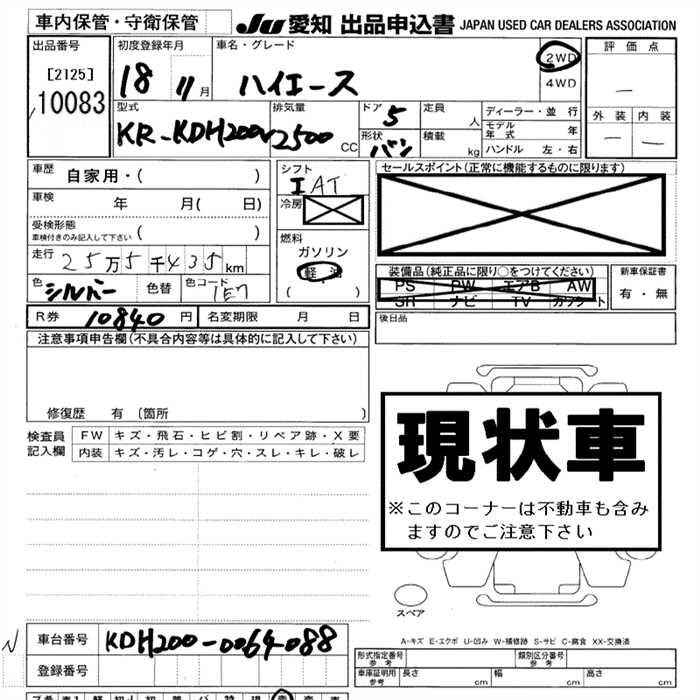 車内保管・守衛保管
JU 愛知 出品申込書 JAPAN USED CAR DEALERS ASSOCIATION
出品番号
[2125]
10083
初度登録年月
18 11 月
車名・グレード
ハイエース
2WD
4WD
評価点
—
外装 内装
— —
型式
KR-KDH200V
排気量
2500 CC
ドア
5
形状
バン
定員
人
積載
kg
ディーラー・並行
モデル年式 年
ハンドル 左・右
車歴 自家用・( )
車検 年 月( 日)
受検形態
車検付きのみ記入して下さい ( )
走行 25万5千435km
色 シルバー 色替 色コード 1E7
シフト
IAT
冷房
燃料
ガソリン
軽油
( )
セールスポイント(正常に機能するものに限ります)
装備品(純正品に限り○をつけてください)
PS PW エアB AW
SR ナビ TV カワシート
新車保証書
有・無
R券 10840 円 名変期限 月 日
後日品
注意事項申告欄(不具合内容等は具体的に記入して下さい)
修復歴 有 (箇所 )
検査員
記入欄
FW キズ・飛石・ヒビ割・リペア跡・X要
内装 キズ・汚レ・コゲ・穴・スレ・キレ・破レ
現状車
※このコーナーは不動車も含み
ますのでご注意下さい
スペア
A-キズ E-エクボ U-凹み W-補修跡 S-サビ C-腐食 XX-交換済
N 車台番号 KDH200-0064088
登録番号
形式指定番号
参考
類別区分番号
参考
車庫証明用
参考
長さ cm 幅 cm 高さ cm